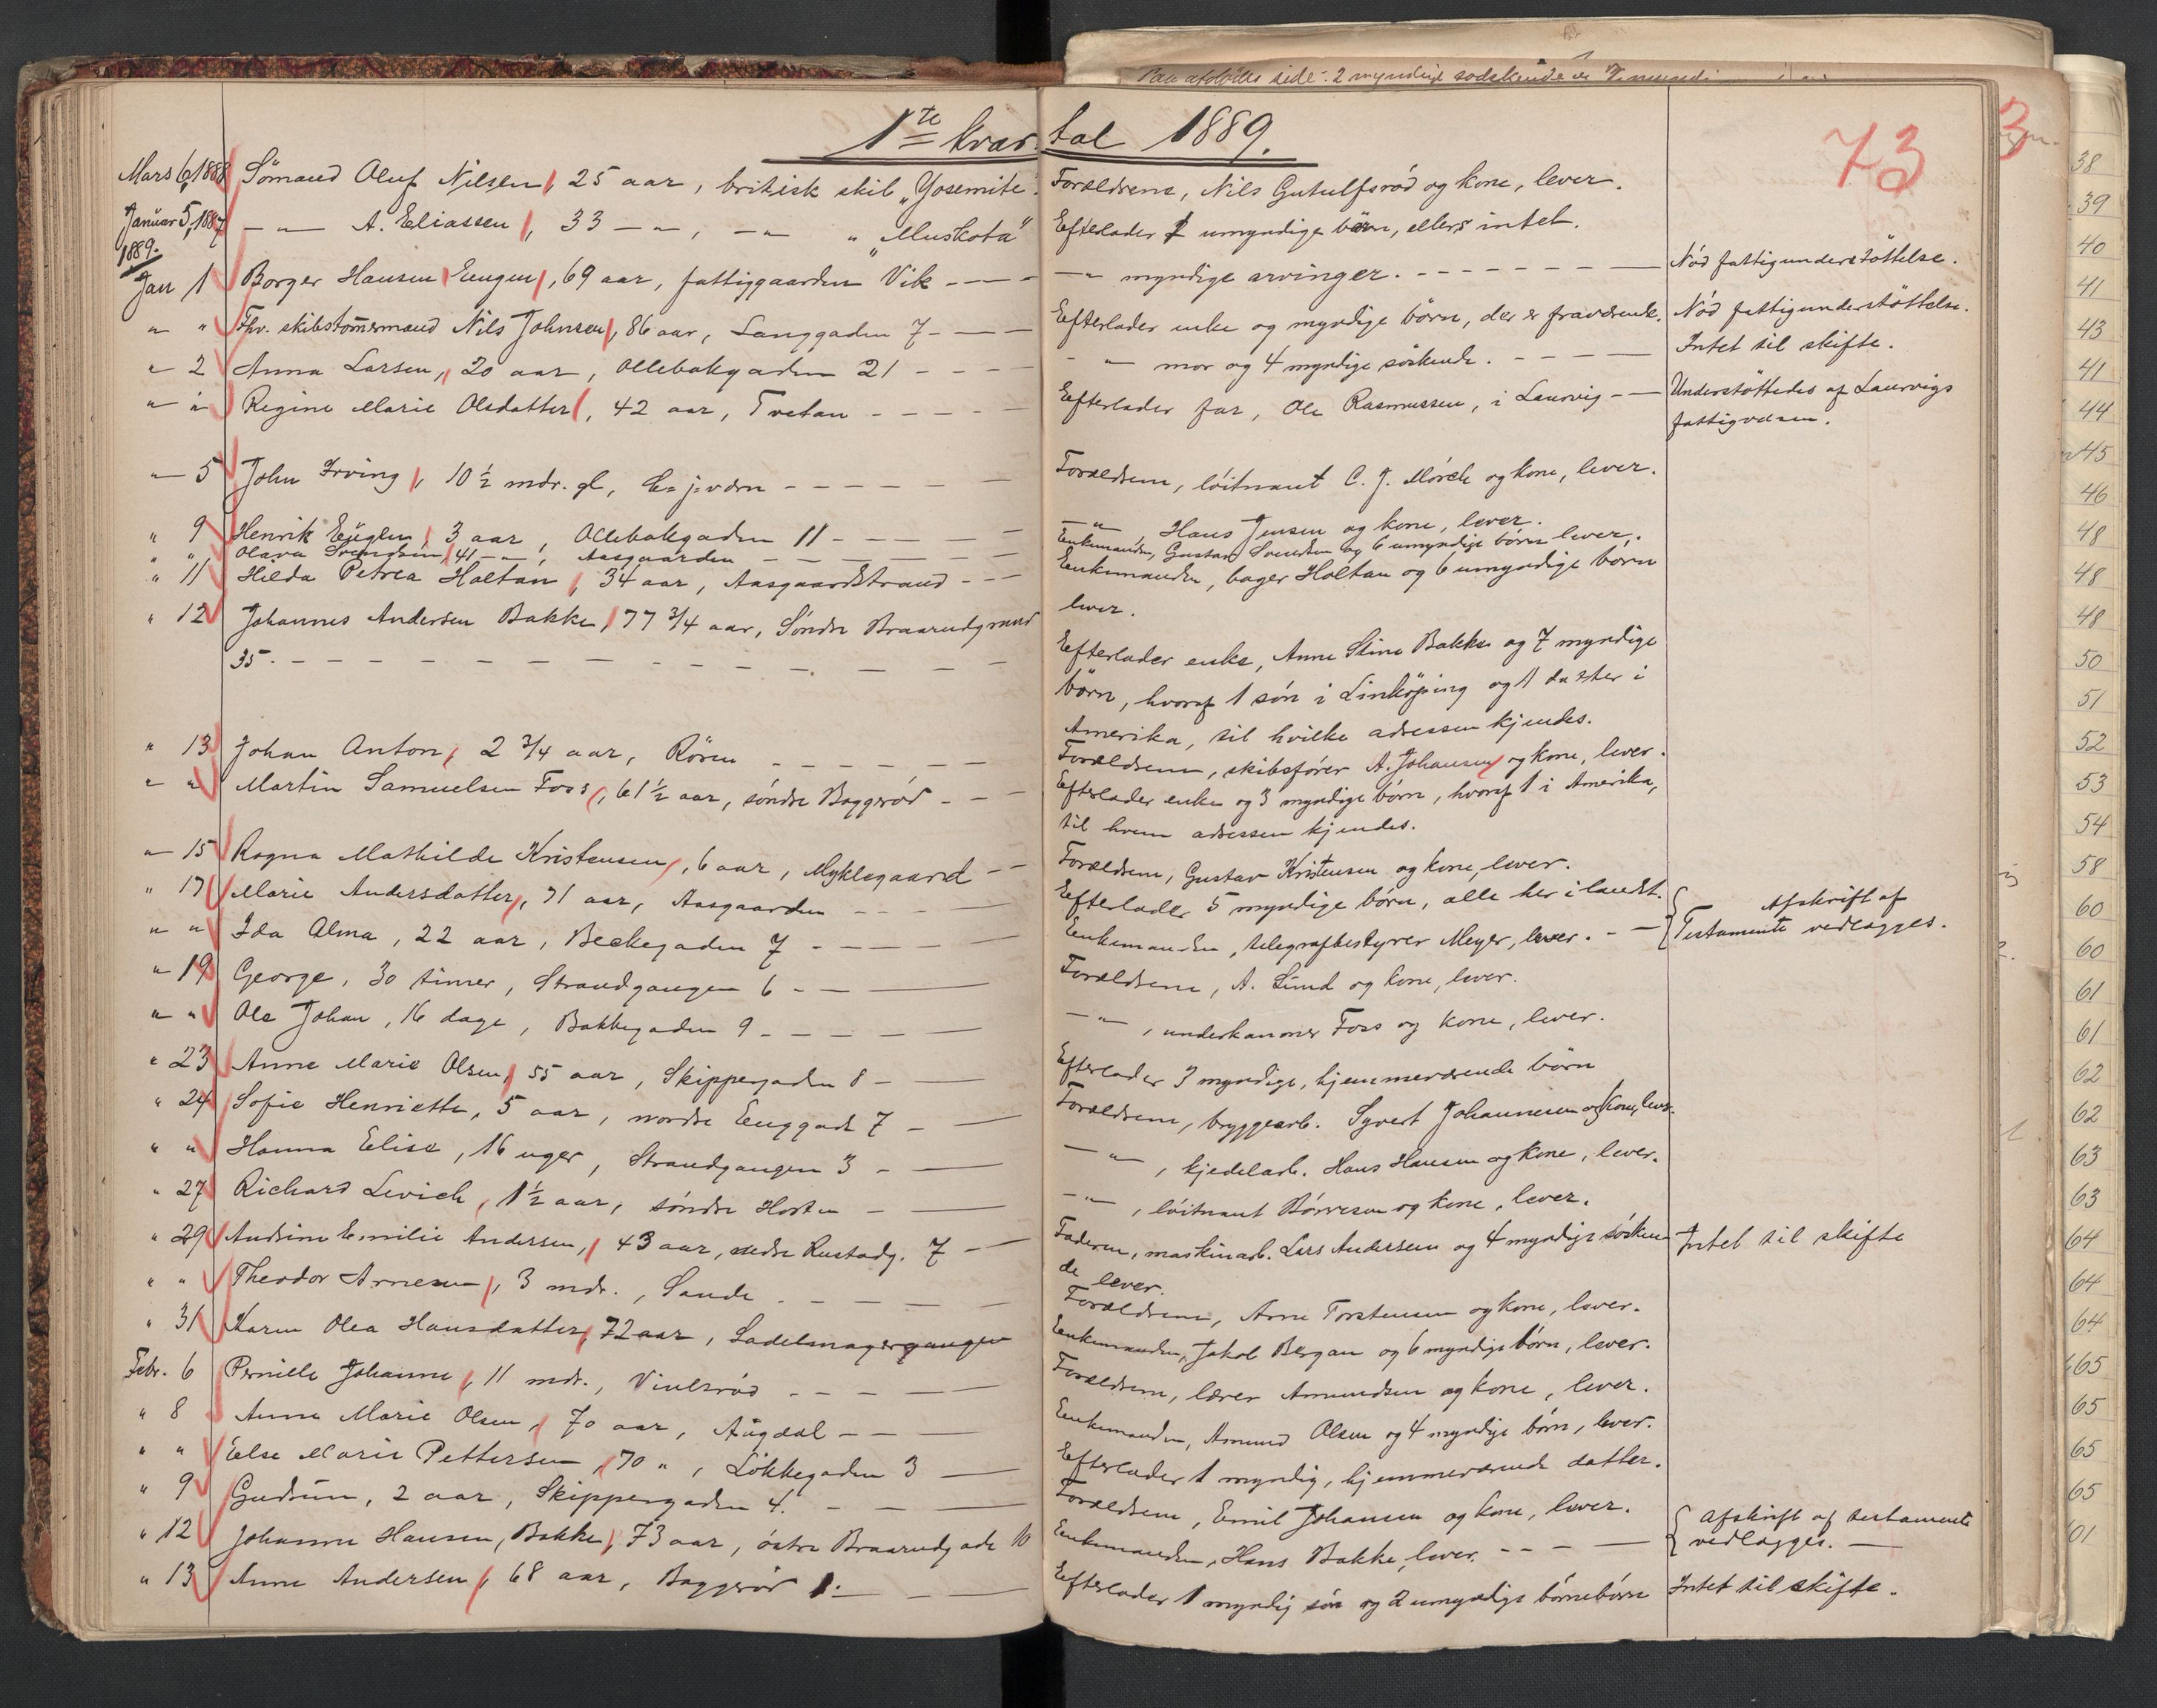 1te kvartal 1889.
73
Mars 6, 1888 Sömand Oluf Nilsen, 25 aar, britisk skib „Yosemite“. Forældrene, Nils Gutulfsröd og kone, lever.
Januar 5, 1887 —„— A. Eliassen, 33 —„—, —„— „Muskota“ Efterlader 2 umyndige börn, ellers intet.
1889.
Jan 1 Borger Hansen Engen, 69 aar, fattiggaarden Vik — —„— myndige arvinger. — Nöd fattigunderstöttelse.
„ „ Fhv. skibstömermand Nils Johnsen, 86 aar, Langgaden 7 — Efterlader enke og myndige börn, der er fraværende. Nöd fattigunderstöttelse.
„ 2 Anna Larsen, 20 aar, Ollebakgaden 21 — —„— mor og 4 myndige söskende. — Intet til skifte.
„ „ Regine Marie Olsdatter, 42 aar, Tvetan — Efterlader far, Ole Rasmussen, i Laurvig — Understöttedes af Laurvigs
fattigvæsen.
„ 5 John Irving, 10 ½ mdr. gl, — Forældrene, löitnant C. J. Mörch og kone, lever.
„ 9 Henrik Eugen, 3 aar, Ollebakgaden 11 — —„—, Hans Jensen og kone, lever.
„ „ Olava Svendsen, 41 —„—, Aasgaarden — Enkemanden, Gustav Svendsen og 6 umyndige börn lever.
„ 11 Hilda Petrea Holtan, 34 aar, Aasgaardstrand — Enkemanden, bager Holtan og 6 umyndige börn
lever.
„ 12 Johannes Andersen Bakke, 77 ¾ aar, Söndre Braarudgrund
35. — Efterlader enke, Anne Stine Bakke og 7 myndige
börn, hvoraf 1 sön i Linköping og 1 datter i
Amerika, til hvilke adressen kjendes.
„ 13 Johan Anton, 2 ¾ aar, Rören — Forældrene, skibsförer A. Johansen og kone, lever.
„ „ Martin Samuelsen Foss, 61 ½ aar, söndre Baggeröd — Efterlader enke og 3 myndige börn, hvoraf 1 i Amerika,
til hvem adressen kjendes.
„ 15 Ragna Mathilde Kristensen, 6 aar, Myklegaard — Forældrene, Gustav Kristensen og kone, lever.
„ 17 Marie Andersdatter, 71 aar, Aasgaarden — Efterlader 5 myndige börn, alle her i landet.
„ „ Ida Alma, 22 aar, Beckegaden 7 — Enkemanden, telegrafbestyrer Meyer, lever. — Afskrift af
Testamente vedlægges.
„ 19 George, 30 timer, Strandgangen 6 — Forældrene, A. Lund og kone, lever.
„ „ Ole Johan, 16 dage, Bakkegaden 9 — —„—, underkanoner Foss og kone, lever.
„ 23 Anne Marie Olsen, 55 aar, Skippergaden 8 — Efterlader 3 myndige, hjemmeværende börn
„ 24 Sofie Henriette, 5 aar, nordre Enggade 7 — Forældrene, bryggearb. Syvert Johannesen og kone, lever.
„ „ Hanna Elise, 16 uger, Strandgangen 3 — —„—, kjedelarb. Hans Hansen og kone, lever.
„ 27 Richard Levich, 1 ½ aar, söndre Horten — —„—, löitnant Börresen og kone, lever.
„ 29 Andrine Emilie Andersen, 43 aar, nedre Rustadg. 7 — Faderen, maskinarb. Lars Andersen og 4 myndige sösken- Intet til skifte
de lever.
„ „ Theodor Arnesen, 3 mdr., Sande — Forældrene, Arne Torstensen og kone, lever.
„ 31 Karen Olea Hansdatter, 72 aar, Sadelmagergangen Enkemanden, Jakob Bergan og 6 myndige börn, lever.
Febr. 6 Pernille Johanne, 11 mdr., Viulsröd — Forældrene, lærer Amundsen og kone, lever.
„ 8 Anne Marie Olsen, 70 aar, Augdal — Enkemanden, Amund Olsen og 4 myndige börn, lever.
„ „ Else Marie Pettersen, 70 „, Lökkegaden 3 — Efterlader 1 myndig, hjemmeværende datter.
„ 9 Gudrun, 2 aar, Skippergaden 4. — Forældrene, Emil Johansen og kone, lever.
„ 12 Johanne Hansen, Bakke, 73 aar, östre Braarudgade 10 Enkemanden, Hans Bakke, lever. — Afskrift af testamente
vedlægges. —
„ 13 Anne Andersen, 68 aar, Baggeröd 1. — Efterlader 1 myndig sön og 2 umyndige börnebörn Intet til skifte.
38
39
40
41
43
41
44
45
46
48
48
48
50
51
52
53
54
58
60
60
61
61
62
62
63
63
64
64
64
65
65
65
65
01